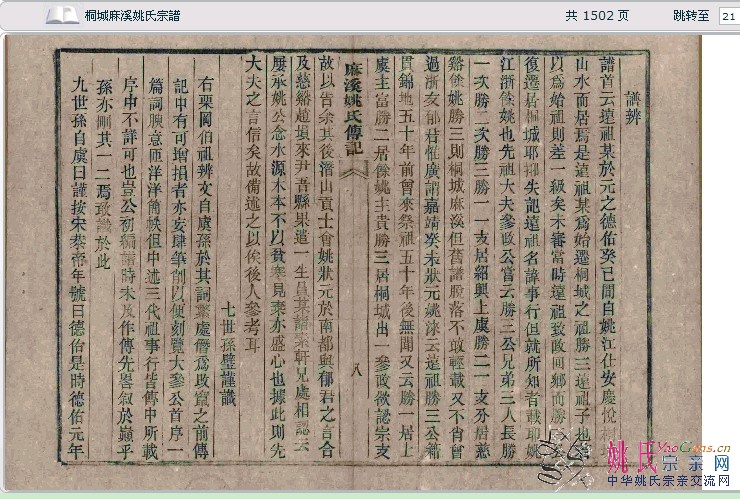 桐城麻溪姚氏宗譜
共 1502 页
跳转至 21
譜辨
譜首云遠祖某於元之德佑癸巳間自姚江仕安慶悅
山水而居焉是遠祖某爲始遷桐城之祖勝三遠祖子也
以爲始祖則差一級矣未審當時遠祖致政回鄉而勝
復遷居桐城耶抑失記遠祖名諱事行但就所知者載耶
江浙餘姚也先祖大夫參政公嘗云勝三公兄弟三人長勝
一次勝二次勝三勝一一支居紹興上虞勝二一支外居慈
谿餘姚勝三則桐城麻溪但舊譜脫落不敢輕載又不肖曾
過浙友郁君惟廣謂嘉靖癸未狀元姚淶云遠祖勝三公籍
貫錦地五十年前曾來祭祖五十年後無聞又云勝一居上
虞主富勝二居餘姚主貴勝三居桐城出一參政欲認宗支
麻溪姚氏傳記
八
故以告余其後潛山貢士會姚狀元於南都與郁吾之言合
及慈谿趙垻來尹吾縣果遣一生員某請紫軒兄處相認云
屢承姚公念水源木本不以貧寒見棄亦盛心也據此則先
大夫之言信矣故備述之以俟後人參考耳
七世孫璧謹識
右栗岡伯祖辨文自虞孫於其詞繁處僭爲政竄之前傳
記中有可增損者亦妄肆筆削以便刻覽大參公首序一
篇詞腴意匝洋洋簡帙但中述三代祖事行皆傳中所載
序中不詳可也豈公初編譜時未及作傳先畧敘於顛乎
孫亦刪其一二焉敢識於此
九世孫自虞曰謹按宋恭帝年號曰德佑是時德佑元年
姚氏宗亲网
YaoGens.cn
中华姚氏宗亲交流网